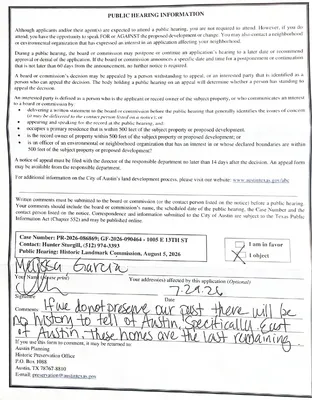 PUBLIC HEARING INFORMATION
Although applicants and/or their agent(s) are expected to attend a public hearing, you are not required to attend. However, if you do
attend, you have the opportunity to speak FOR or AGAINST the proposed development or change. You may also contact a neighborhood
or environmental organization that has expressed an interest in an application affecting your neighborhood.
During a public hearing, the board or commission may postpone or continue an application's hearing to a later date or recommend
approval or denial of the application. If the board or commission announces a specific date and time for a postponement or continuation
that is not later than 60 days from the announcement, no further notice is required.
A board or commission's decision may be appealed by a person with standing to appeal, or an interested party that is identified as a
person who can appeal the decision. The body holding a public hearing on an appeal will determine whether a person has standing to
appeal the decision.
An interested party is defined as a person who is the applicant or record owner of the subject property, or who communicates an interest
to a board or commission by:
• delivering a written statement to the board or commission before the public hearing that generally identifies the issues of concern
(it may be delivered to the contact person listed on a notice); or
• appearing and speaking for the record at the public hearing; and:
• occupies a primary residence that is within 500 feet of the subject property or proposed development;
• is the record owner of property within 500 feet of the subject property or proposed development; or
• is an officer of an environmental or neighborhood organization that has an interest in or whose declared boundaries are within
500 feet of the subject property or proposed development.
A notice of appeal must be filed with the director of the responsible department no later than 14 days after the decision. An appeal form
may be available from the responsible department.
For additional information on the City of Austin's land development process, please visit our website: www.austintexas.gov/abc
Written comments must be submitted to the board or commission (or the contact person listed on the notice) before a public hearing.
Your comments should include the board or commission's name, the scheduled date of the public hearing, the Case Number and the
contact person listed on the notice. Correspondence and information submitted to the City of Austin are subject to the Texas Public
Information Act (Chapter 552) and may be published online.
Case Number: PR-2026-088869; GF-2026-090464 - 1005 E 13TH ST
Contact: Hunter Sturgill, (512) 974-3393
Public Hearing: Historic Landmark Commission, August 5, 2026
I am in favor
X I object
Melissa Garcia
Your Name (please print)
Your address(es) affected by this application (Optional)
7.29.26
Signature
Date
Comments: If we do not preserve our past there will be
no history to tell of Austin, specifically East
of Austin. These homes are the last remaining
If you use this form to comment, it may be returned to:
Austin Planning
Historic Preservation Office
P.O. Box 1088
Austin, TX 78767-8810
E-mail: preservation@austintexas.gov